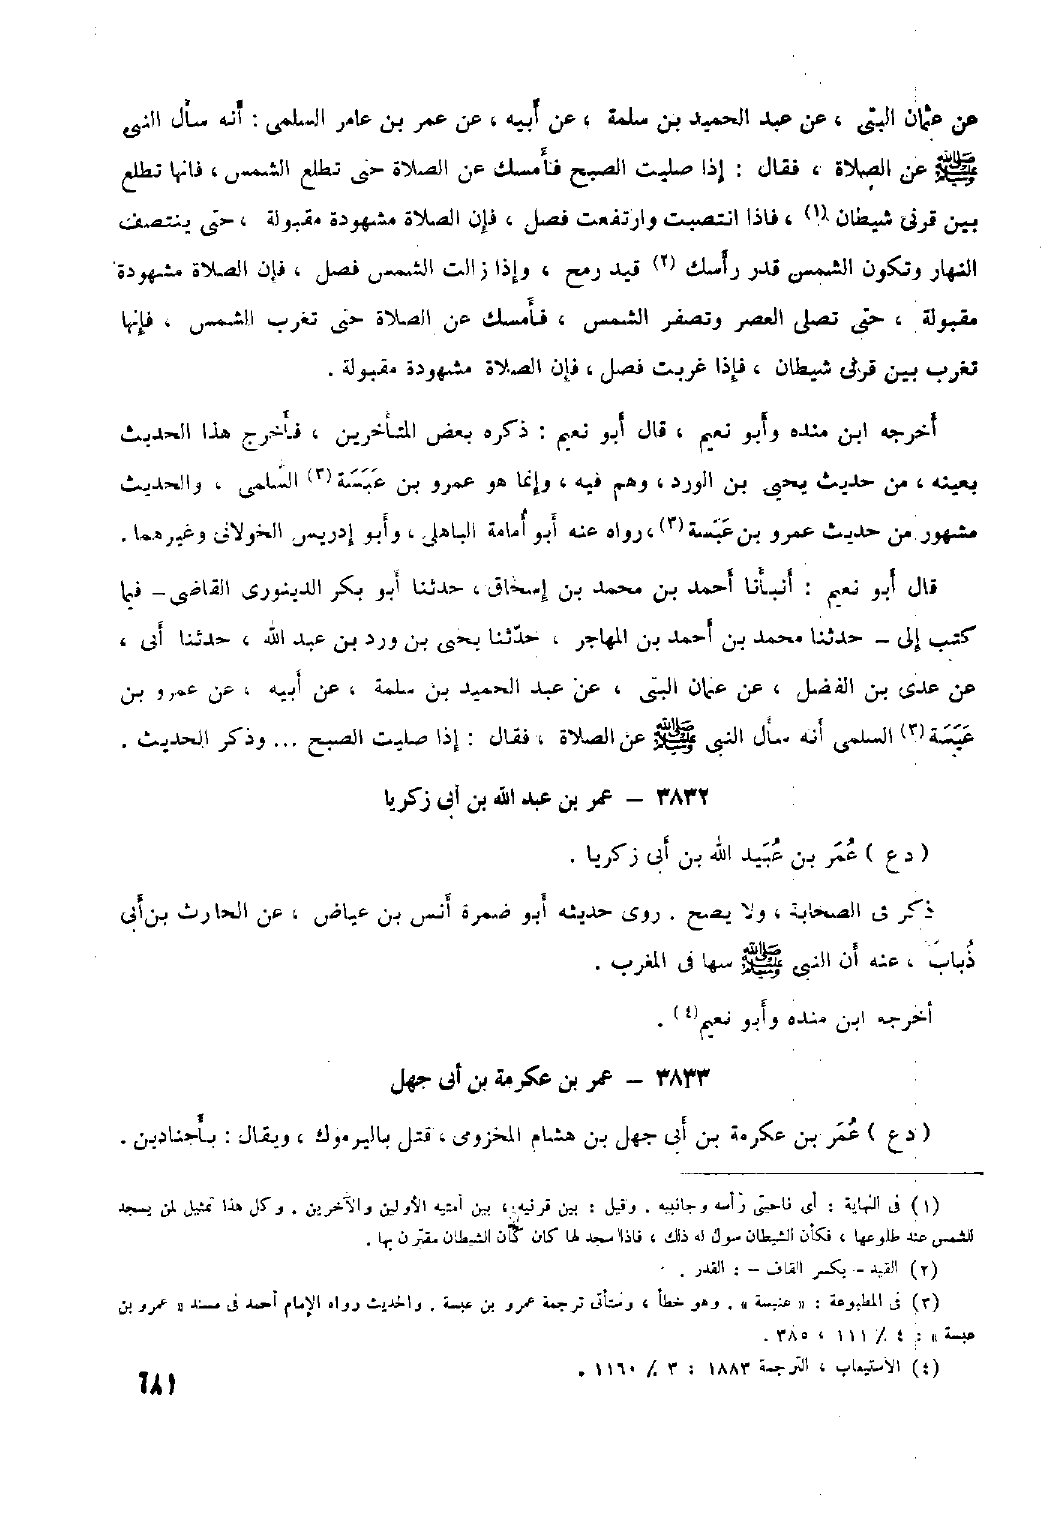 عن عثمان البتى ، عن عبد الحميد بن سلمة ، عن أبيه ، عن عمر بن عامر السلمى : أنه سأل النبى
ﷺ عن الصلاة ، فقال : إذا صليت الصبح فأمسك عن الصلاة حتى تطلع الشمس ، فانها تطلع
بين قرنى شيطان (١) ، فاذا انتصبت وارتفعت فصل ، فإن الصلاة مشهودة مقبولة ، حتى ينتصف
النهار وتكون الشمس قدر رأسك (٢) قيد رمح ، وإذا زالت الشمس فصل ، فإن الصلاة مشهودة
مقبولة ، حتى تصلى العصر وتصفر الشمس ، فأمسك عن الصلاة حتى تغرب الشمس ، فإنها
تغرب بين قرنى شيطان ، فإذا غربت فصل ، فإن الصلاة مشهودة مقبولة .
أخرجه ابن منده وأبو نعيم ، قال أبو نعيم : ذكره بعض المتأخرين ، فأخرج هذا الحديث
بعينه ، من حديث يحيى بن الورد ، وهم فيه ، وإنما هو عمرو بن عَبَسَة (٣) السُّلمى ، والحديث
مشهور من حديث عمرو بن عَبَسة (٣) ، رواه عنه أبو أُمامة الباهلى ، وأبو إدريس الخولانى وغيرهما .
قال أبو نعيم : أنبأنا أحمد بن محمد بن إسحاق ، حدثنا أبو بكر الدينورى القاضى – فيما
كتب إلى – حدثنا محمد بن أحمد بن المهاجر ، حدّثنا يحيى بن ورد بن عبد الله ، حدثنا أبى ،
عن عدى بن الفضل ، عن عثمان البتى ، عن عبد الحميد بن سلمة ، عن أبيه ، عن عمرو بن
عَبَسَة (٣) السلمى أنه سأل النبى ﷺ عن الصلاة ، فقال : إذا صليت الصبح ... وذكر الحديث .
٣٨٣٢ – عمر بن عبد الله بن أبى زكريا
( د ع ) عُمَر بن عُبَيد الله بن أبى زكريا .
ذكر فى الصحابة ، ولا يصح . روى حديثه أبو ضمرة أنس بن عياض ، عن الحارث بن أبى
ذُبابَ ، عنه أن النبى ﷺ سها فى المغرب .
أخرجه ابن منده وأبو نعيم (٤) .
٣٨٣٣ – عمر بن عكرمة بن أبى جهل
( د ع ) عُمَر بن عكرمة بن أبى جهل بن هشام المخزومى ، قتل باليرموك ، ويقال : بأجنادين .
(١) فى النهاية : أى ناحيتى رأسه وجانبيه . وقيل : بين قرنيه ، بين أمتيه الأولين والآخرين . وكل هذا تمثيل لمن يسجد
للشمس عند طلوعها ، فكأن الشيطان سول له ذلك ، فاذا سجد لها كان كأن الشيطان مقترن بها .
(٢) القيد – بكسر القاف – : القدر .
(٣) فى المطبوعة : « عنبسة » . وهو خطأ ، وستأتى ترجمة عمرو بن عبسة . والحديث رواه الإمام أحمد فى مسند « عمرو بن
عبسة » : ٤ / ١١١ ، ٣٨٥ .
(٤) الاستيعاب ، الترجمة ١٨٨٣ : ٣ / ١١٦٠ .
٦٨١